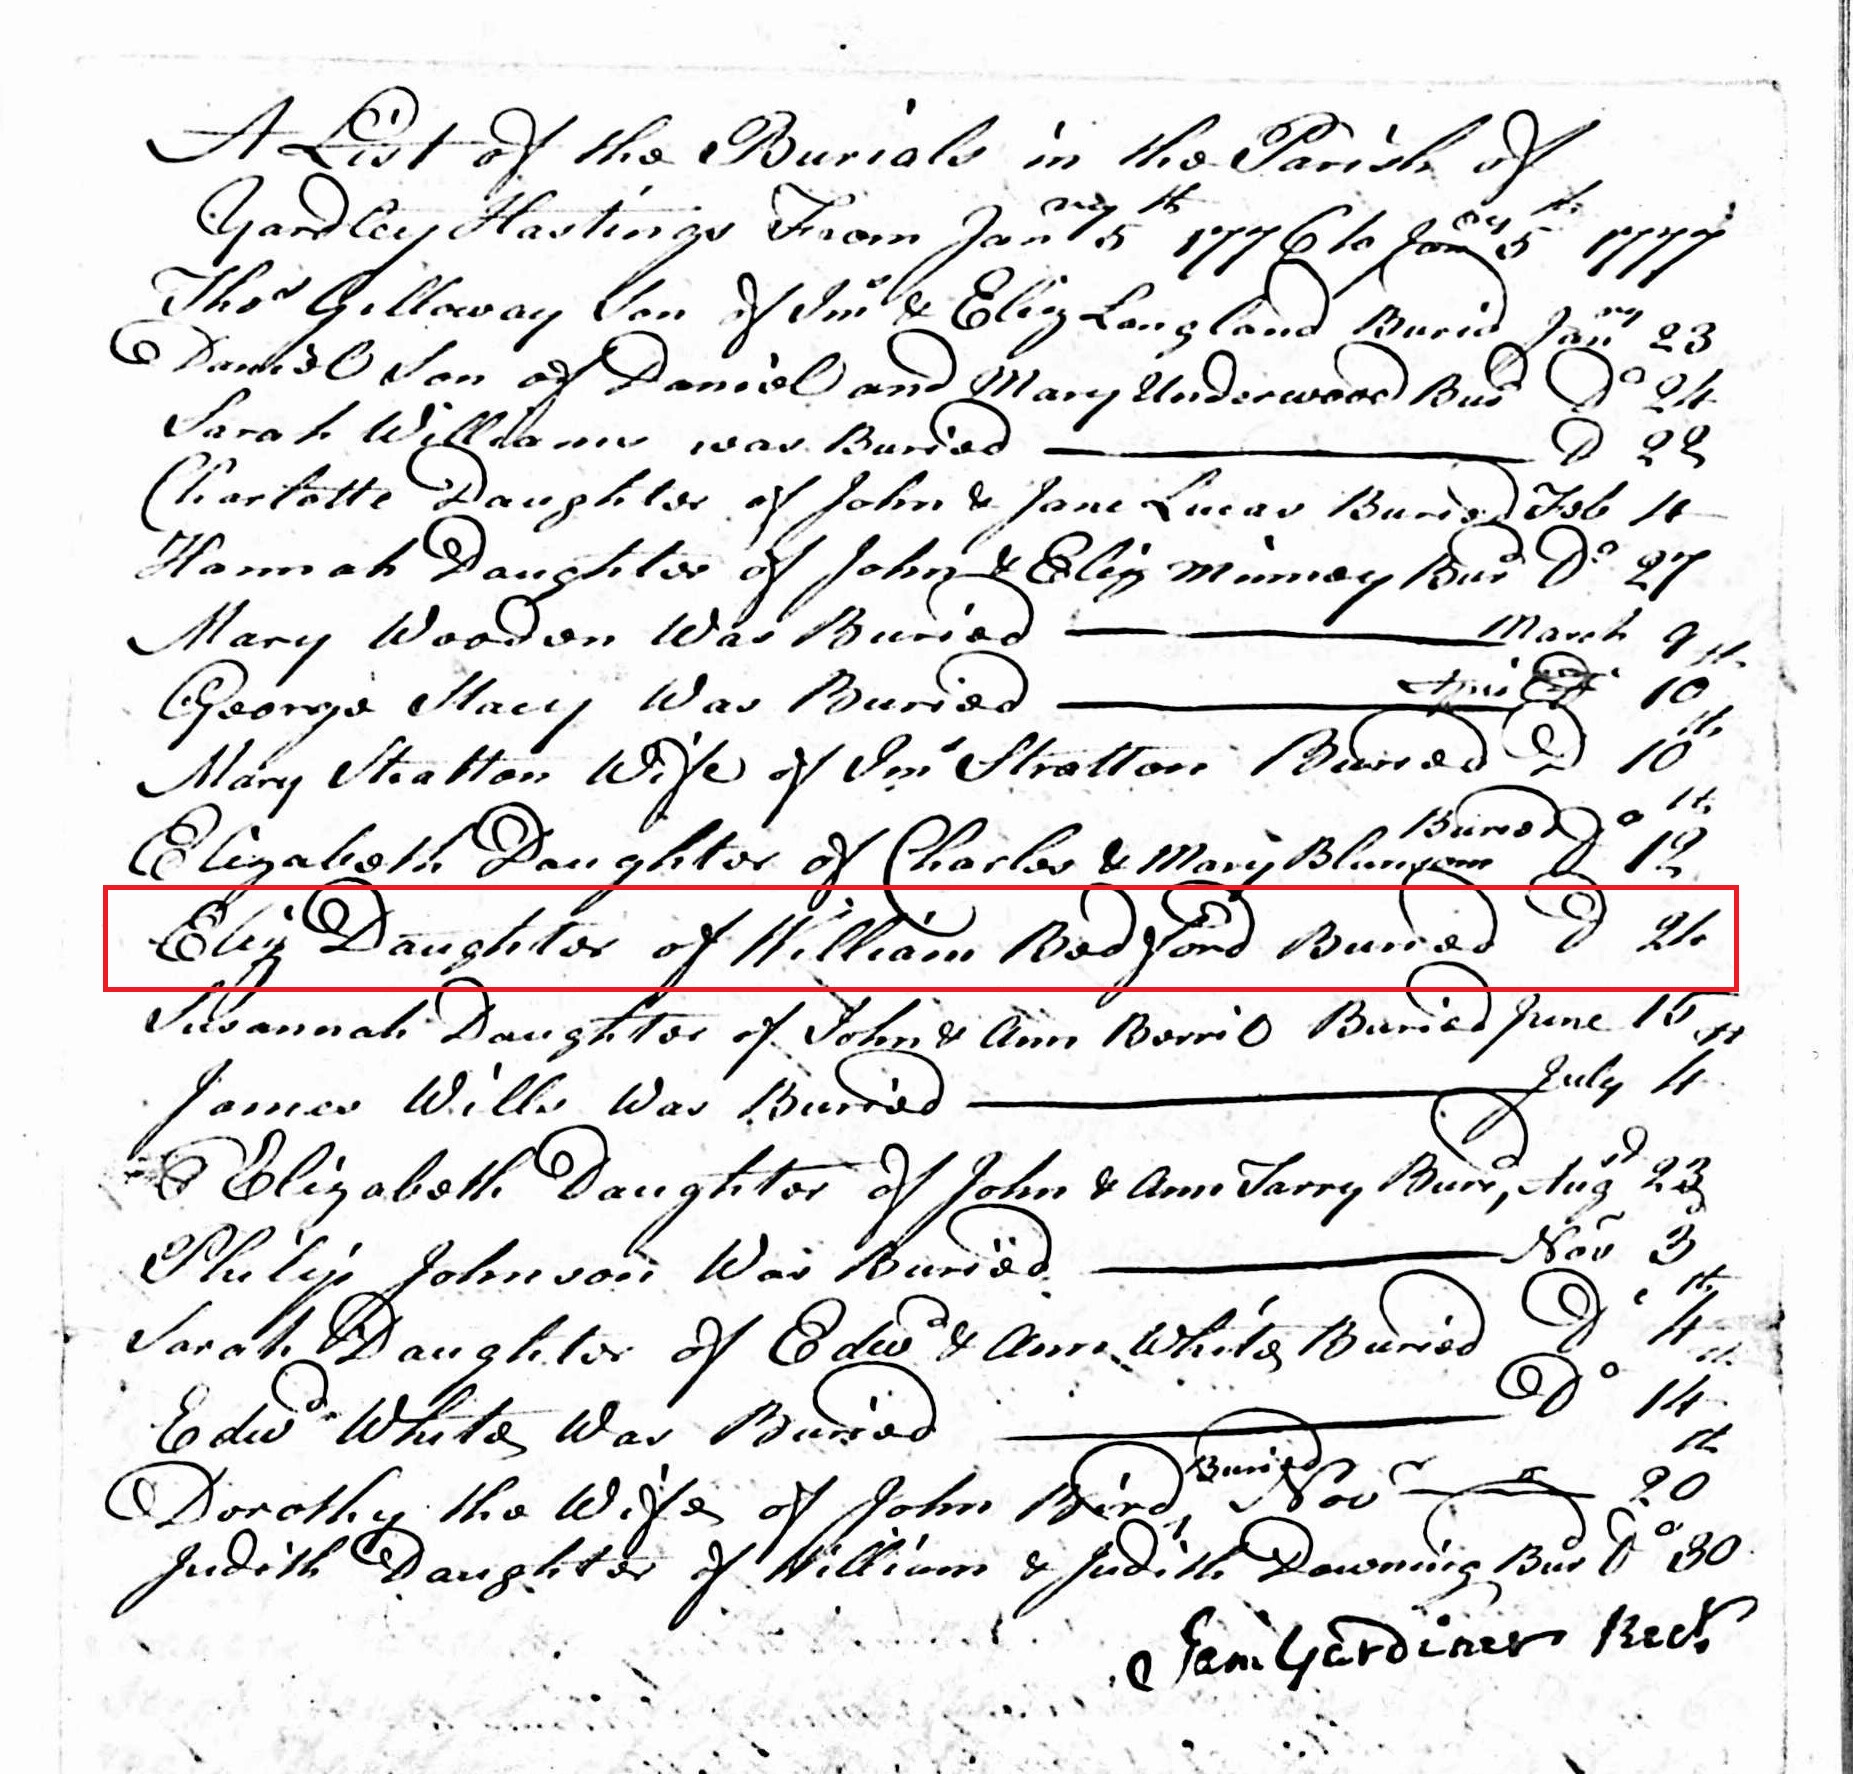 A List of the Burials in the Parish of
Yardley Hastings From Janry 5th 1776 to Janry 5th 1777
Thos Gilloway Son of Jms & Eliz Langland Buried Janry 23
Daniel Son of Daniel and Mary Underwood Bur Do 24
Sarah Williams was Buried D 28
Charlotte Daughter of John & Jane Lucas Buried Feb 4
Hannah Daughter of John & Eliz Minney Bur Do 27
Mary Wooden Was Buried March 9th
George Stacy Was Buried 10th
Mary Stratton Wife of Jms Stratton Buried D 10
Elizabeth Daughter of Charles & Mary Blunsom Buried Do 12th
Eliz Daughter of William Bedford Buried D 24
Susannah Daughter of John & Ann Berril Buried June 15th
James Wills Was Buried July 4
Elizabeth Daughter of John & Ann Tarry Buri'd Augst 23
Philip Johnson Was Buried Novr 3
Sarah Daughter of Edwd & Ann White Buried Do 4th
Edwd White Was Buried Do 14th
Dorothy the Wife of John Bird Buried Novr 20th
Judith Daughter of William & Judith Downing Bur Do 30
Sam Gardiner Rectr